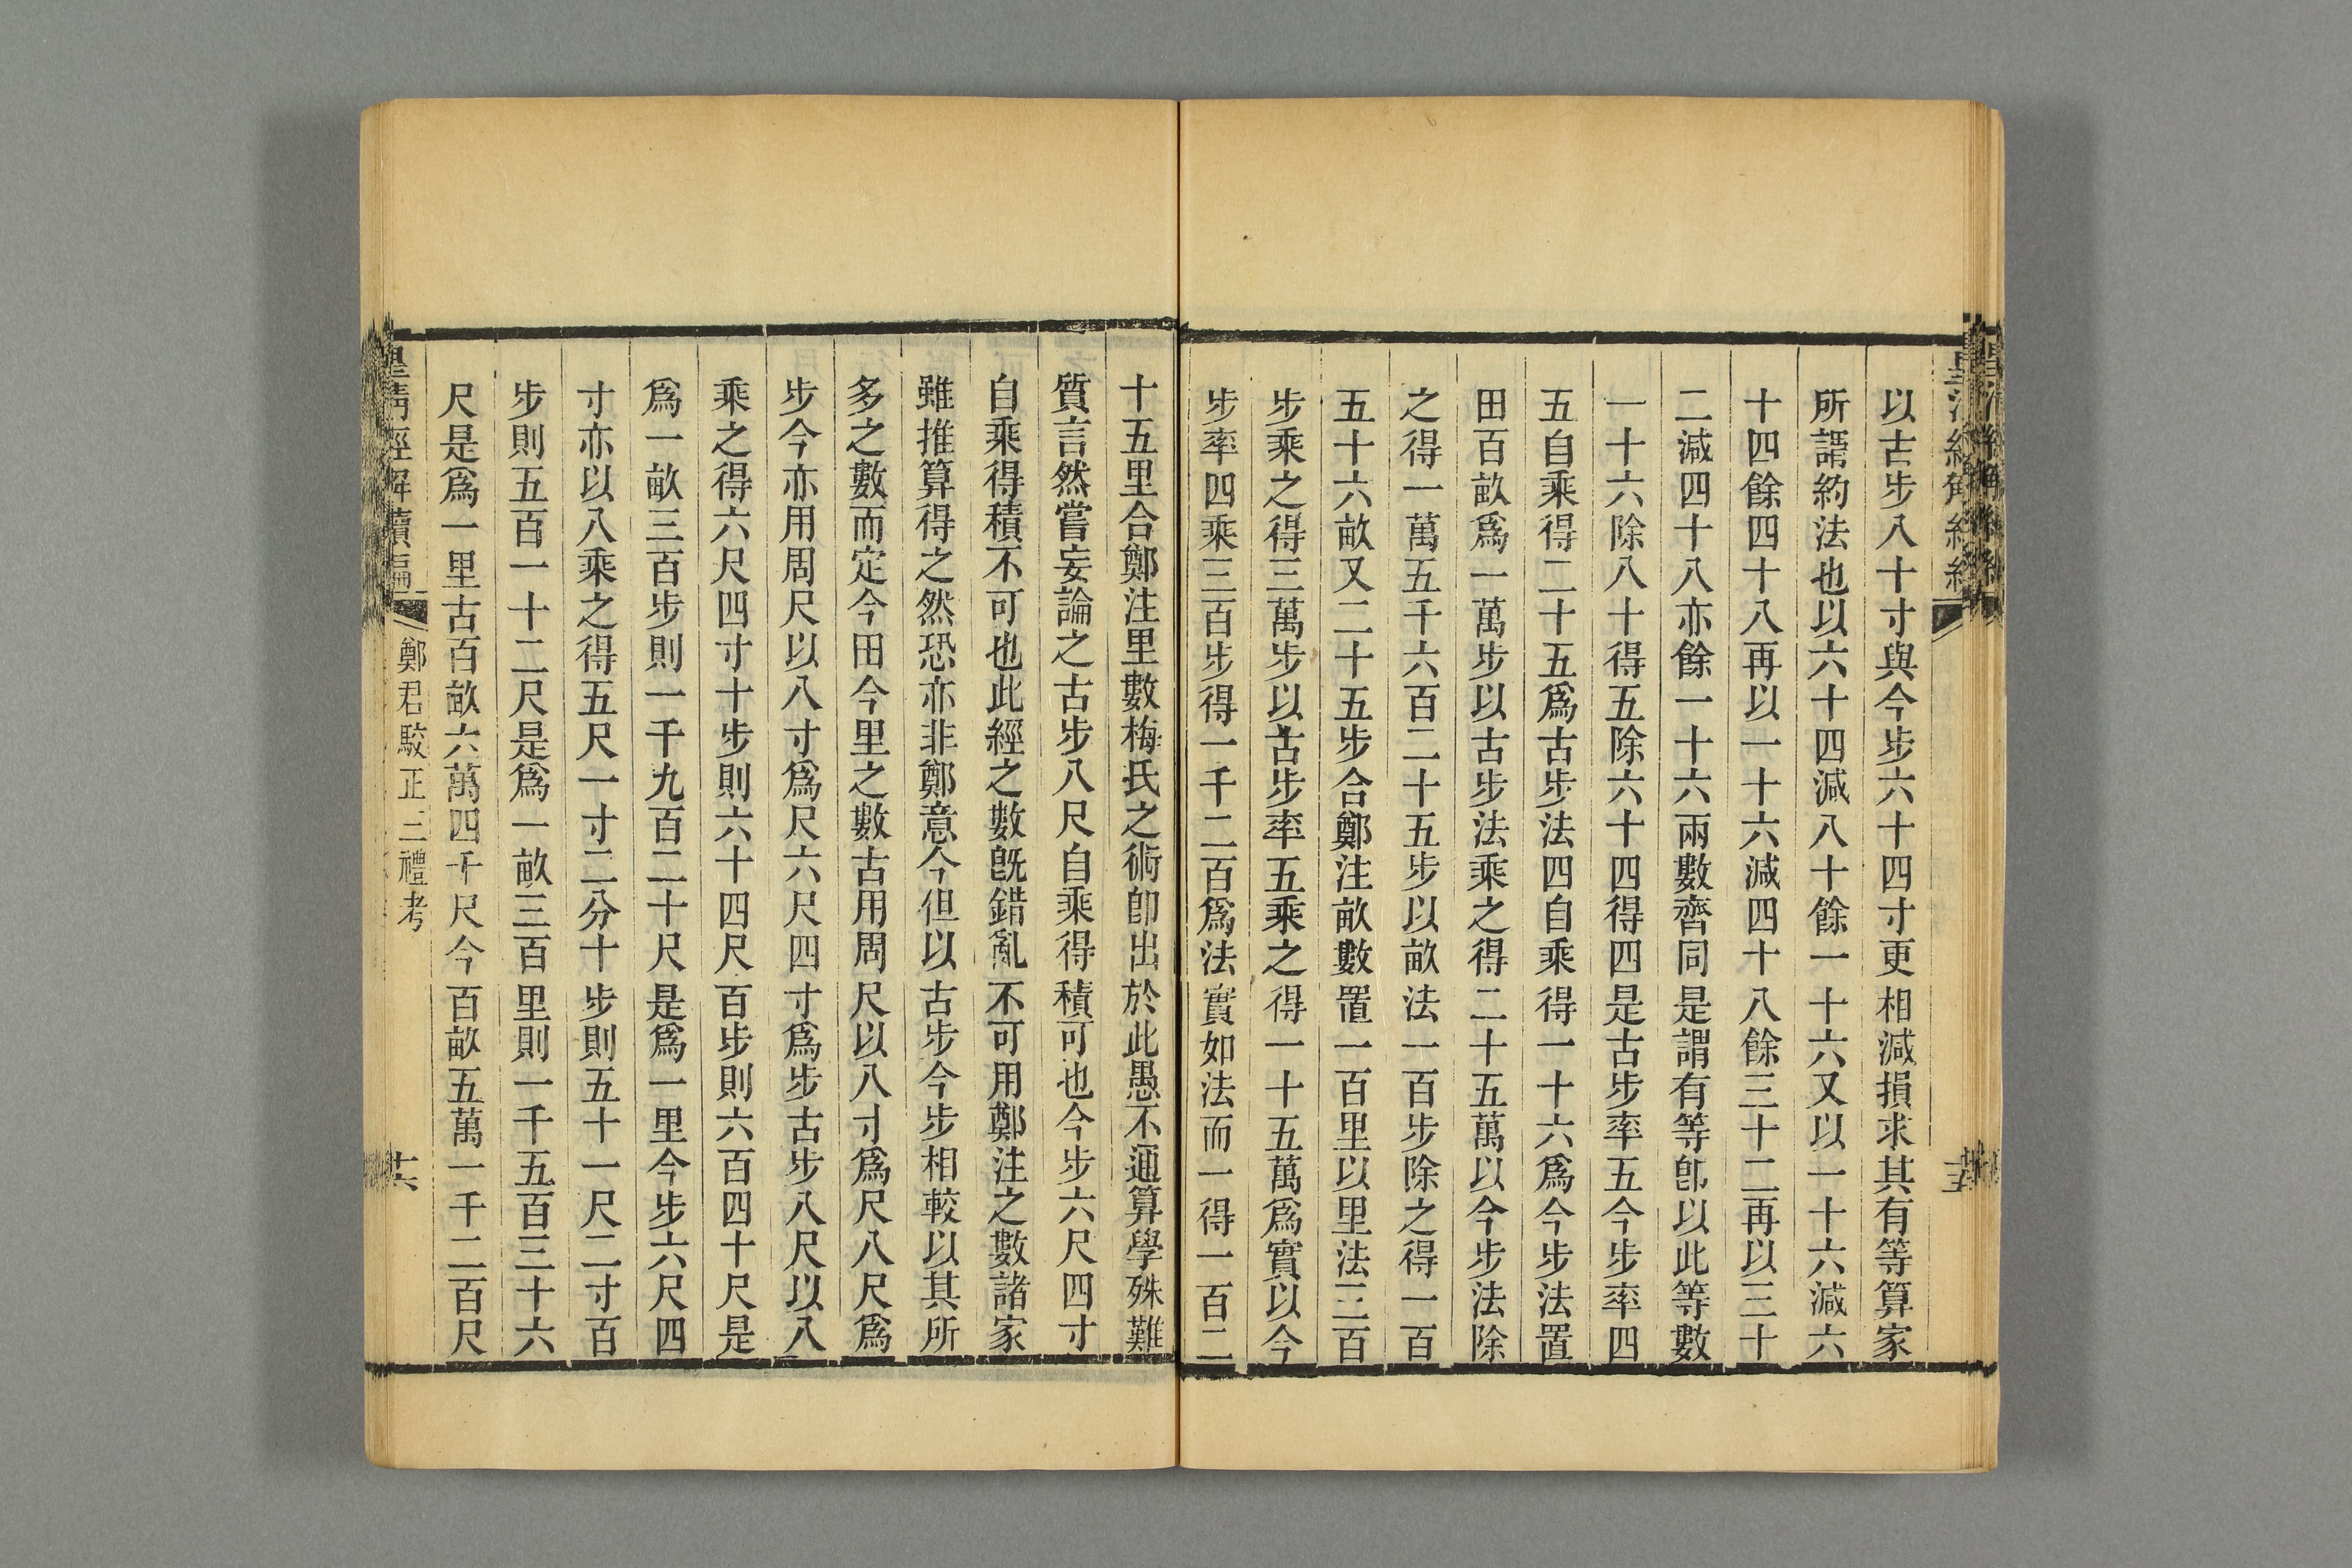 以古步八十寸與今步六十四寸更相減損求其有等算家
所謂約法也以六十四減八十餘一十六又以一十六減六
十四餘四十八再以一十六減四十八餘三十二再以三十
二減四十八亦餘一十六兩數齊同是謂有等卽以此等數
一十六除八十得五除六十四得四是古步率五今步率四
五自乘得二十五爲古步法四自乘得一十六爲今步法置
田百畝爲一萬步以古步法乘之得二十五萬以今步法除
之得一萬五千六百二十五步以畝法一百步除之得一百
五十六畝又二十五步合鄭注畝數置一百里以里法三百
步乘之得三萬步以古步率五乘之得一十五萬爲實以今
步率四乘三百步得一千二百爲法實如法而一得一百二
十五里合鄭注里數梅氏之術卽出於此愚不通算學殊難
質言然嘗妄論之古步八尺自乘得積可也今步六尺四寸
自乘得積不可也此經之數旣錯亂不可用鄭注之數諸家
雖推算得之然恐亦非鄭意今但以古步今步相較以其所
多之數而定今田今里之數古用周尺以八寸爲尺八尺爲
步今亦用周尺以八寸爲尺六尺四寸爲步古步八尺以八
乘之得六尺四寸十步則六十四尺百步則六百四十尺是
爲一畝三百步則一千九百二十尺是爲一里今步六尺四
寸亦以八乘之得五尺一寸二分十步則五十一尺二寸百
步則五百一十二尺是爲一畝三百里則一千五百三十六
尺是爲一里古百畝六萬四千尺今百畝五萬一千二百尺
皇淸經解續編
鄭君駁正三禮考
十六